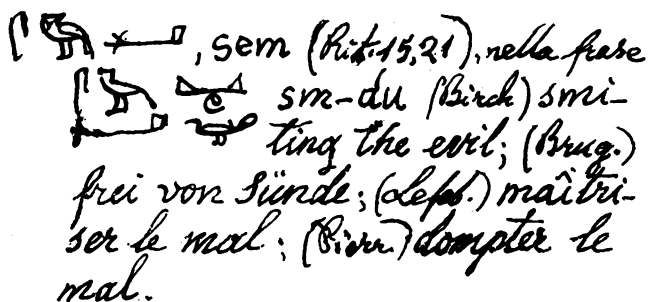 , sem (Rit. 15,21), nella frase
sm-du (Birch) smi-
ting the evil; (Brug.)
frei von Sünde; (Lefb.) maîtri-
ser le mal; (Pierr.) dompter le
mal.